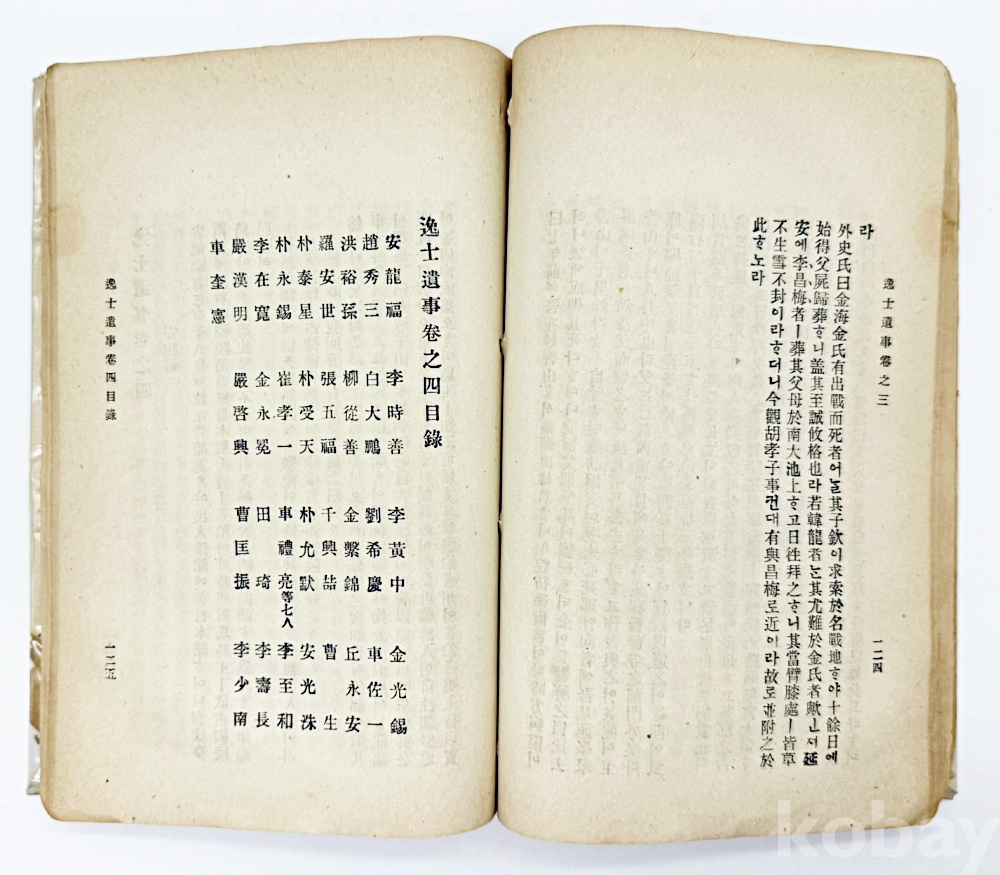 逸士遺事卷之三
一二四
라
外史氏曰金海金氏有出戰而死者어ᄂᆞᆯ其子欽이求索於名戰地ᄒᆞ야十餘日에
始得父屍歸葬ᄒᆞ니盖其至誠攸格也라若韓龍者ᄂᆞᆫ其尤難於金氏者歟ㅣㄴ져延
安에李昌梅者ㅣ葬其父母於南大池上ᄒᆞ고日徃拜之ᄒᆞ니其當臂膝處ㅣ皆草
不生雪不封이라ᄒᆞ더니今觀胡孝子事컨대有與昌梅로近이라故로並附之於
此ᄒᆞ노라
逸士遺事卷之四目錄
安龍福 李時善 李黃中 金光錫
趙秀三 白大鵬 劉希慶 車佐一
洪裕孫 柳從善 金繫錦 丘永安
羅安世 張五福 千興喆 曹生
朴泰星 朴受天 朴允默 安光洙
朴永錫 崔孝一 車禮亮等七人 李至和
李在寬 金永冕 田琦 李壽長
嚴漢明 嚴啓興 曹匡振 李少南
車奎憲
逸士遺事卷四目錄
一二五
kobay